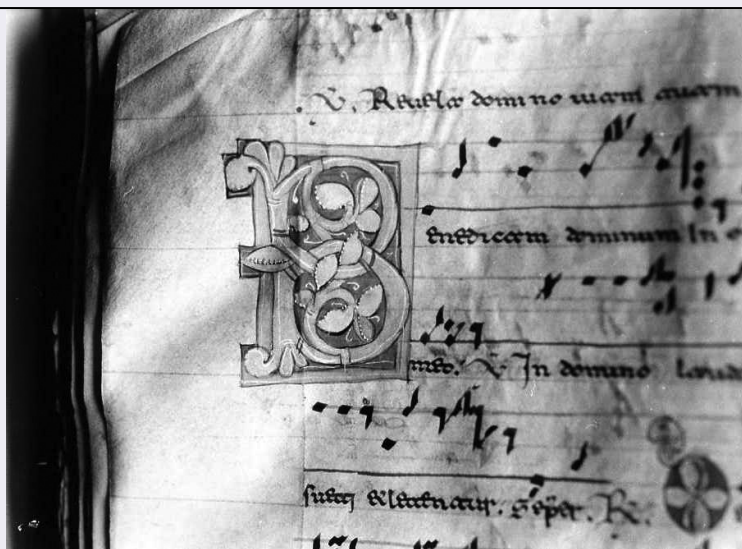 ℣. Reuela domino uiam tuam
Benedicam dominum In o
meo. ℣ In domino lauda
sueti & letentur. Sēper. ℟.